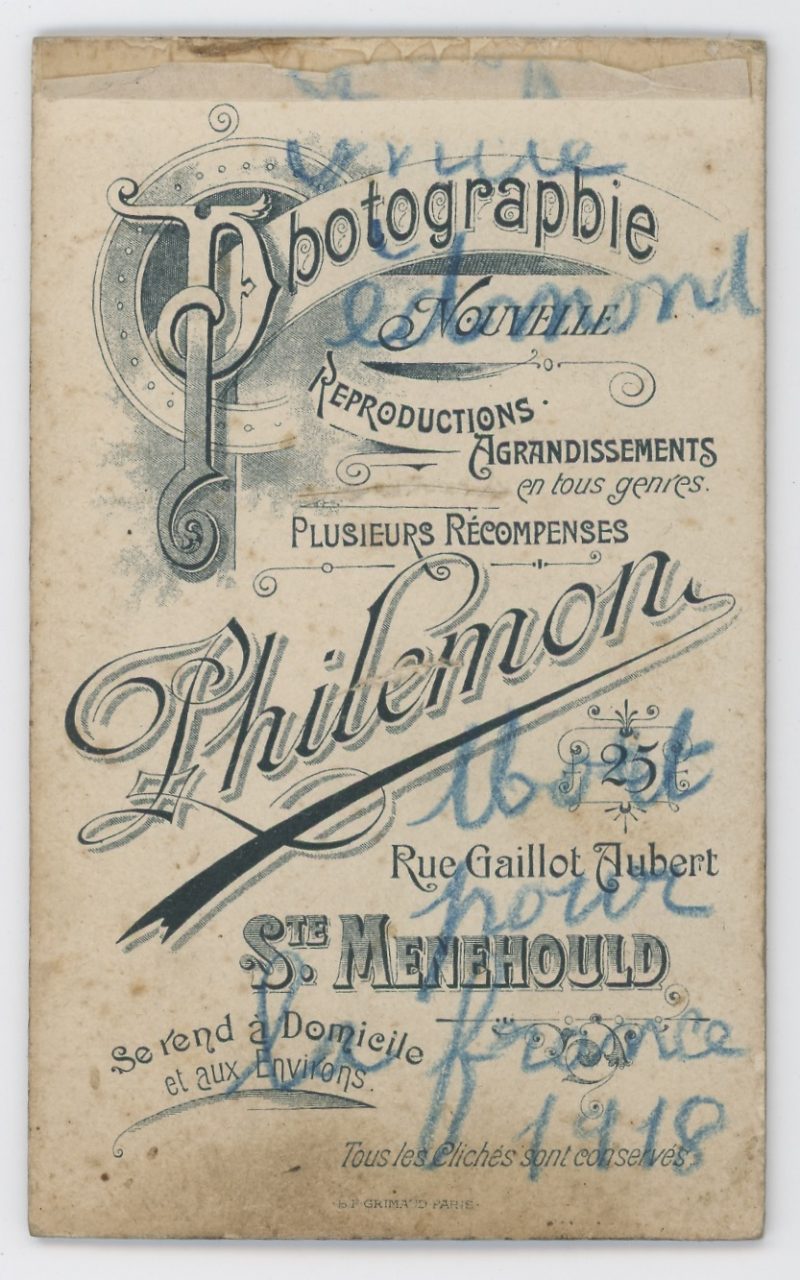 Photographie
edmond
Nouvelle
Reproductions.
Agrandissements
en tous genres.
Plusieurs Récompenses
Philemon
25
Rue Gaillot Aubert
pour
Ste. Menehould
la france
Se rend à Domicile
et aux Environs.
1918
Tous les Clichés sont conservés.
B.P. GRIMAUD PARIS